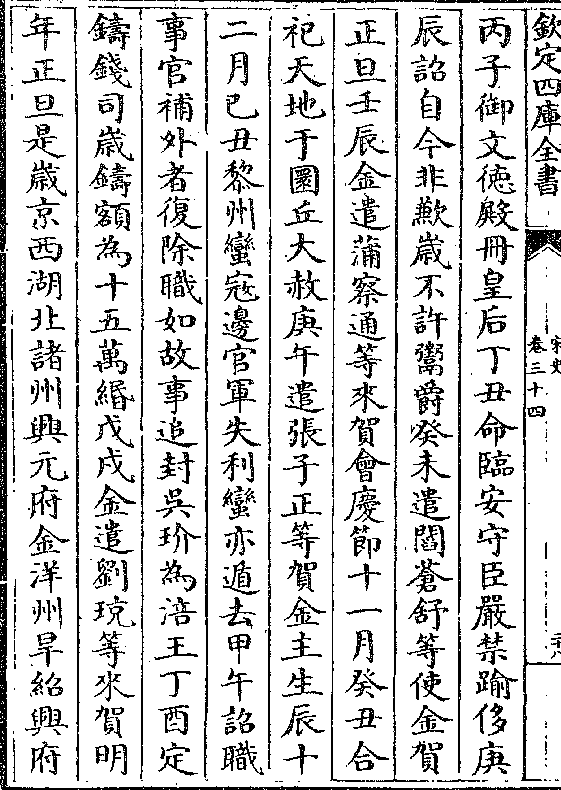 欽定四庫全書
宋史
卷三十四
丙子御文徳殿冊皇后丁丑命臨安守臣嚴禁踰侈庚
辰詔自今非歉歳不許鬻爵癸未遣閻蒼舒等使金賀
正旦壬辰金遣蒲察通等來賀會慶節十一月癸丑合
祀天地于圜丘大赦庚午遣張子正等賀金主生辰十
二月己丑黎州蠻宼邊官軍失利蠻亦遁去甲午詔職
事官補外者復除職如故事追封吳玠為涪王丁酉定
鑄錢司歳鑄額為十五萬緡戊戌金遣劉珫等來賀明
年正旦是歳京西湖北諸州興元府金洋州旱紹興府